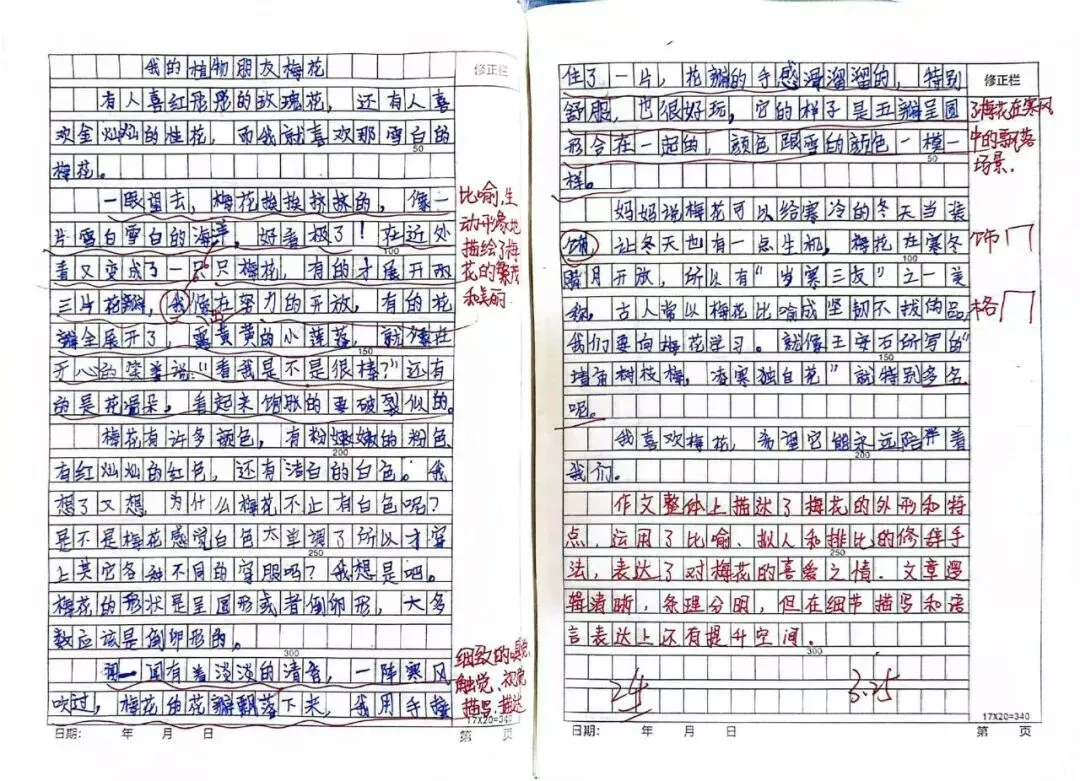 我的植物朋友梅花
修正栏
有人喜红彤彤的玫瑰花，还有人喜
欢金灿灿的桂花，而我就喜欢那雪白的
50
梅花。
一眼望去，梅花挨挨挤挤的，像一
片雪白雪白的海洋，好看极了！在近处
100
看又变成了一只只梅花，有的才展开两
三片花瓣，我像在努力的开放，有的花
瓣全展开了，露黄黄的小莲蓬，就像在
150
开心的笑着说：“看我是不是很棒？”还有
的是花骨朵，看起来饱胀的要破裂似的。
梅花有许多颜色，有粉嫩嫩的粉色
200
有红灿灿的红色，还有洁白的白色。我
想了又想，为什么梅花不止有白色呢？
是不是梅花感觉白色太单调了所以才穿
250
上其它各种不同的穿服吗？我想是吧。
梅花的形状是呈圆形或者倒卵形，大多
数应该是倒卵形的。
300
闻一闻有着淡淡的清香，一阵寒风
吹过，梅花的花瓣飘落下来，我用手接
17X20=340
日期： 年 月 日 第 页
比喻，生
动形象地
描绘了梅
花的繁茂
和美丽
细致的嗅觉
触觉、视觉
描写，描达
住了一片，花瓣的手感滑溜溜的，特别
修正栏
舒服，也很好玩，它的样子是五瓣呈圆
形合在一起的，颜色跟雪的颜色一模一
50
样。
妈妈说梅花可以给寒冷的冬天当装
饰，让冬天也有一点生机，梅花在寒冬
100
腊月开放，所以有“岁寒三友”之一美
称，古人常以梅花比喻成坚韧不拔的品
我们要向梅花学习。就像王安石所写的“
150
墙角树枝梅，凌寒独自花”就特别多名
呢。
我喜欢梅花，希望它能永远陪伴着
200
我们。
了梅花在寒风
中的飘落
场景.
饰
格
作文整体上描达了梅花的外形和特
点，运用了比喻、拟人和排比的修辞手
250
法，表达了对梅花的喜爱之情．文章逻
辑清晰，条理分明，但在细节描写和语
言表达上还有提升空间．
300
24
3.25
17X20=340
日期： 年 月 日 第 页